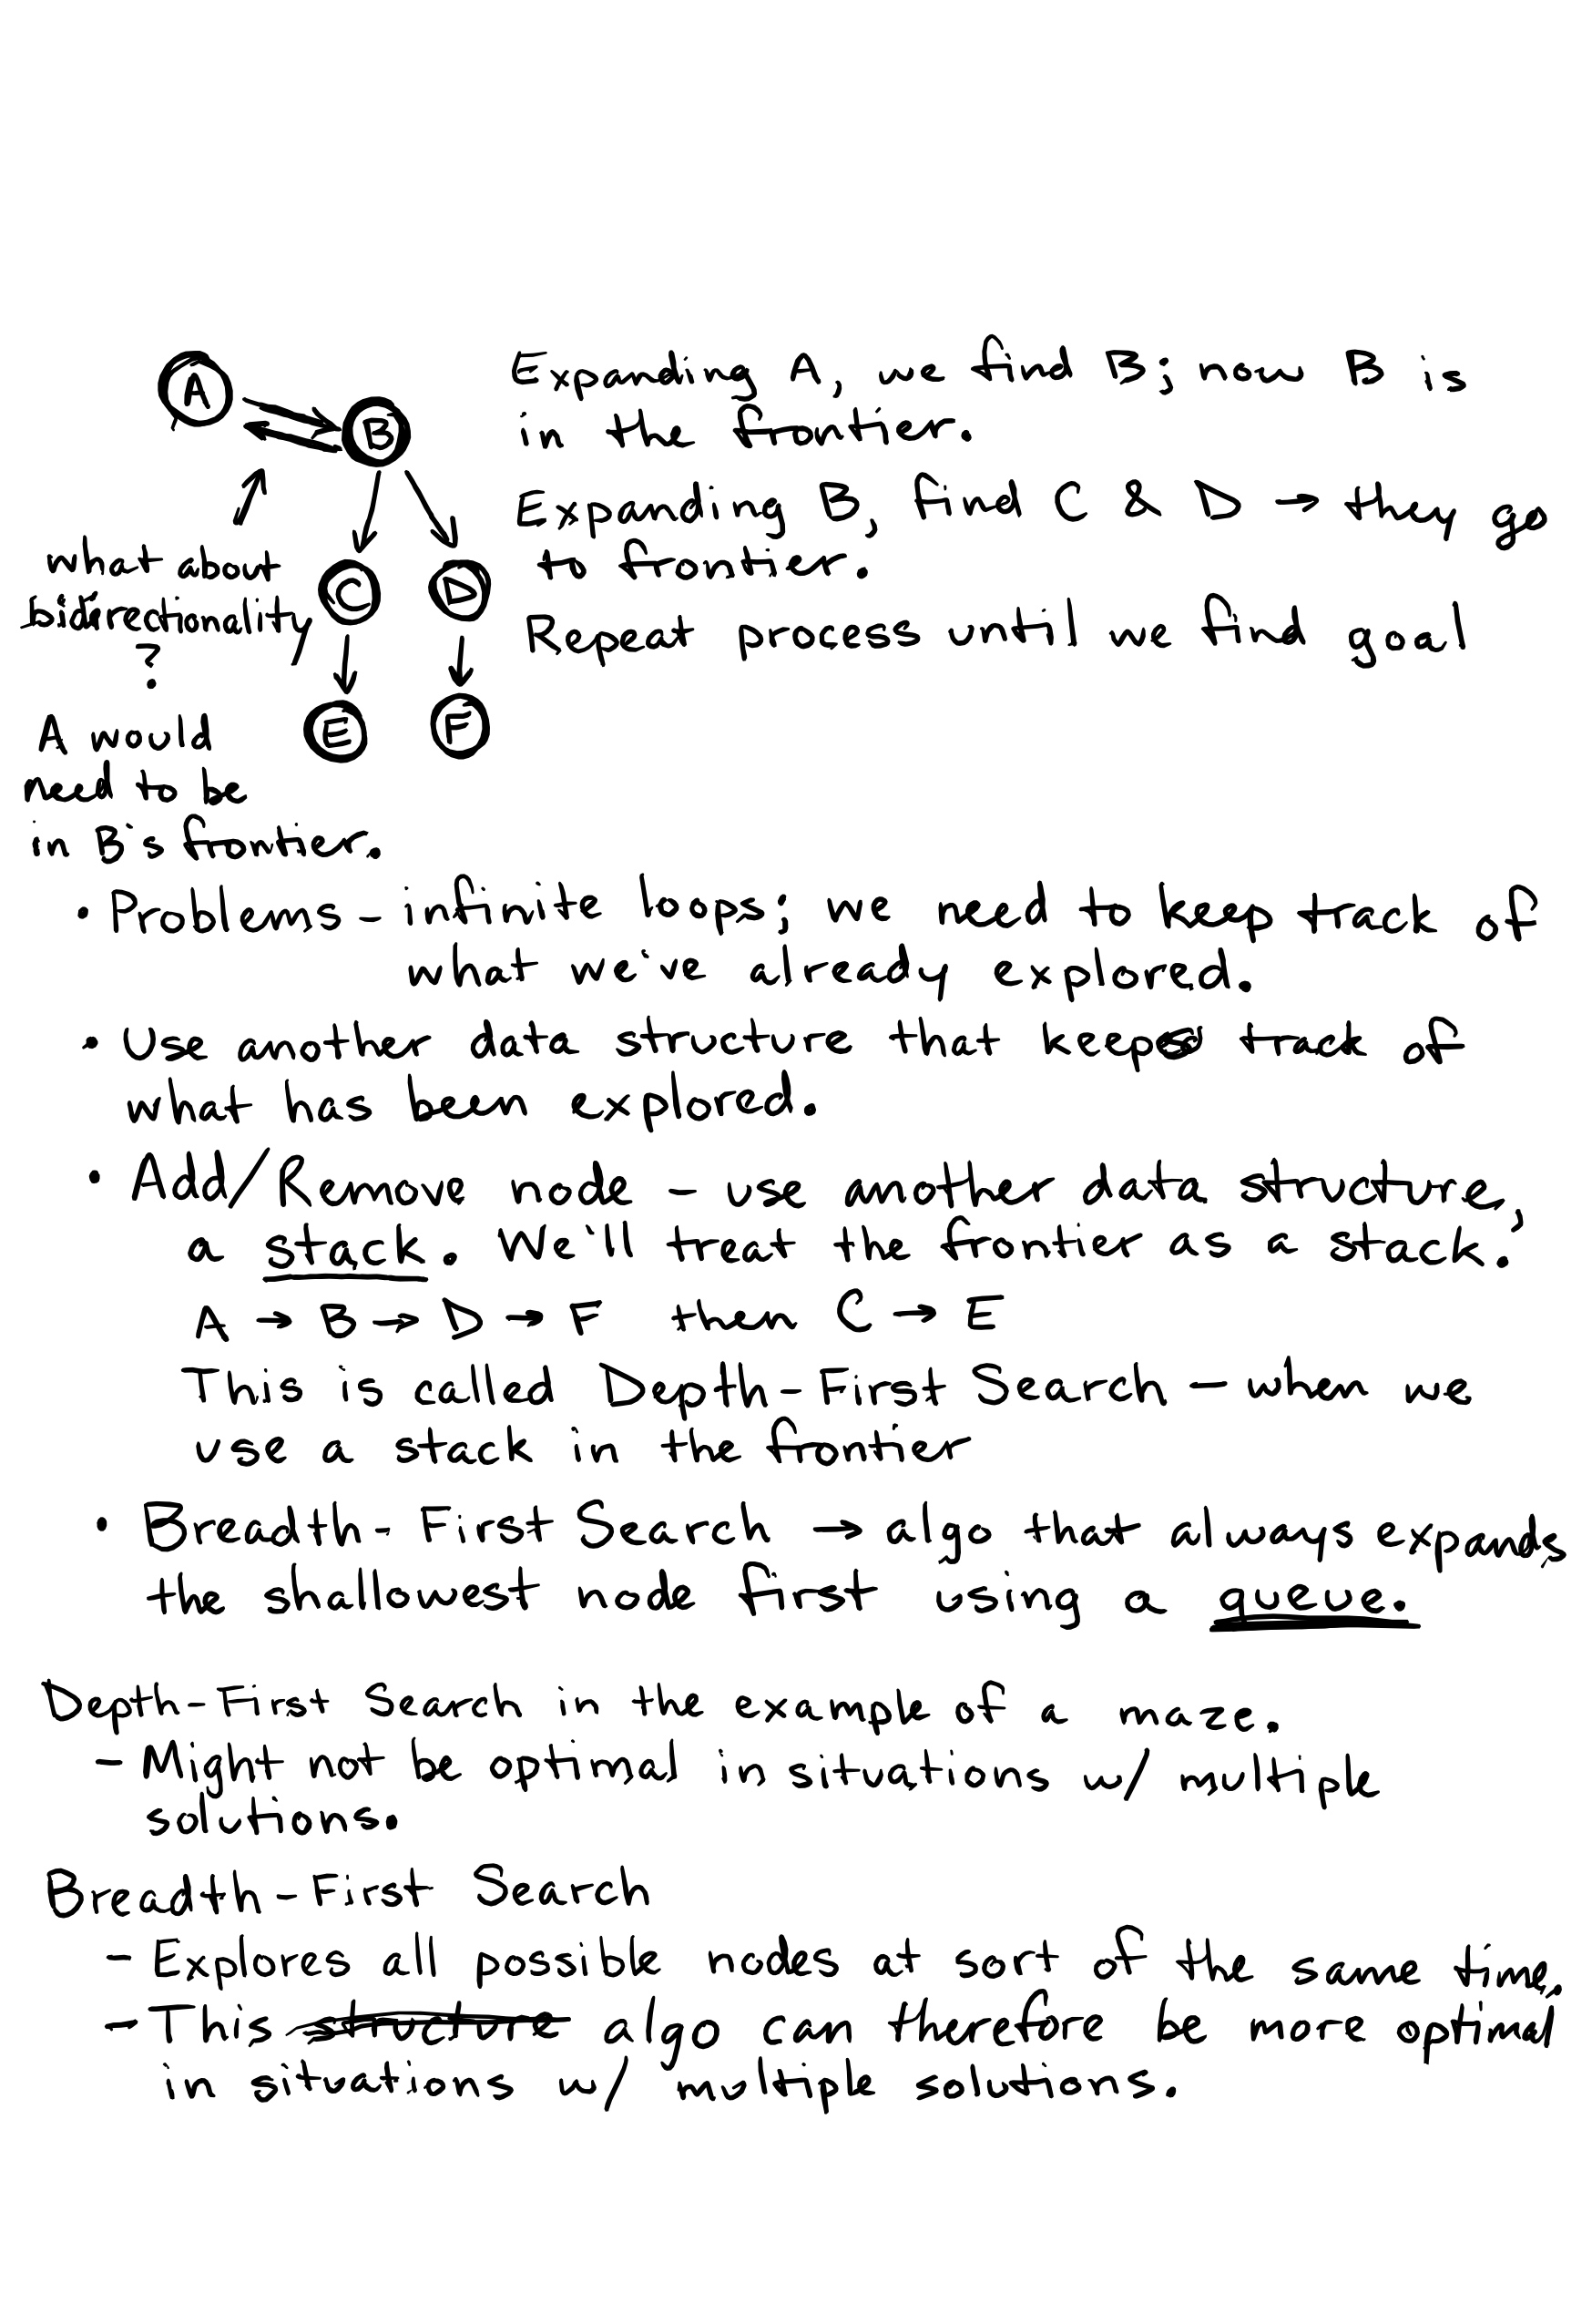 A
B
C
D
E
F
what about
bidirectionality
?
A would
need to be
in B's frontier.
Expanding A, we find B; now B is
in the frontier.
Expanding B, find C & D → they go
to frontier.
Repeat process until we find goal
• Problems - infinite loops; we need to keep track of
what we've already explored.
• Use another data structure that keeps track of
what has been explored.
• Add/Remove node - use another data structure,
a stack. We'll treat the frontier as a stack.
A → B → D → F then C → E
This is called Depth-First Search - when we
use a stack in the frontier
• Breadth-First Search → algo that always expands
the shallowest node first using a queue.
Depth-First Search in the example of a maze.
- Might not be optimal in situations w/ multiple
solutions.
Breadth-First Search
- Explores all possible nodes at sort of the same time.
- This structure algo can therefore be more optimal
in situations w/ multiple solutions.